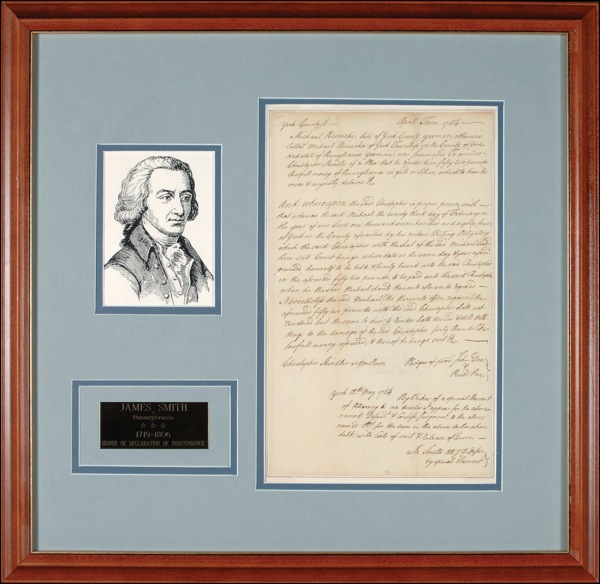 York County ss — April Term 1784 —
Michael late of York County yeoman otherwise
called Michael of York Township in the County of York
and State of Pennsylvania yeoman was summoned to answer
Christopher of a Plea that he render him fifty two pounds
lawfull money of Pennsylvania in gold or silver which to him he
owes & unjustly detains &
And whereupon the said Christopher in proper person saith —
that whereas the said Michael the twenty third day of February in
the year of our Lord one thousand seven hundred and eighty four
at York in the County aforesaid by his certain Writing Obligatory
which the said Christopher with the Seal of the said Michael
here into Court brings whose date is the same day & year afore
himself to be held & firmly bound unto the said Christopher
in the aforesaid fifty two pounds to be paid unto the said Christopher
when he the said Michael should thereunto afterwards require —
Nevertheless the said Michael, tho thereunto often required the
aforesaid fifty two pounds to the said Christopher hath not
rendered but the same to him to render hath denied & still doth
to the damage of the said Christopher forty Pounds like
lawfull money aforesaid, & thereof he brings suit &
Christopher Pledges of John Doe
&
Richd Roe
York 12th May 1784
By Virtue of a special Warrant
of Attorney to me directed I appear for the above
named Defendt & Confess Judgment to the above
named Plf for the sum in the above declaration
debt with Costs of suit & release of Errors —
Js Smith atty
by special Warrant
JAMES SMITH
Pennsylvania
1719-1806
SIGNER OF DECLARATION OF INDEPENDENCE